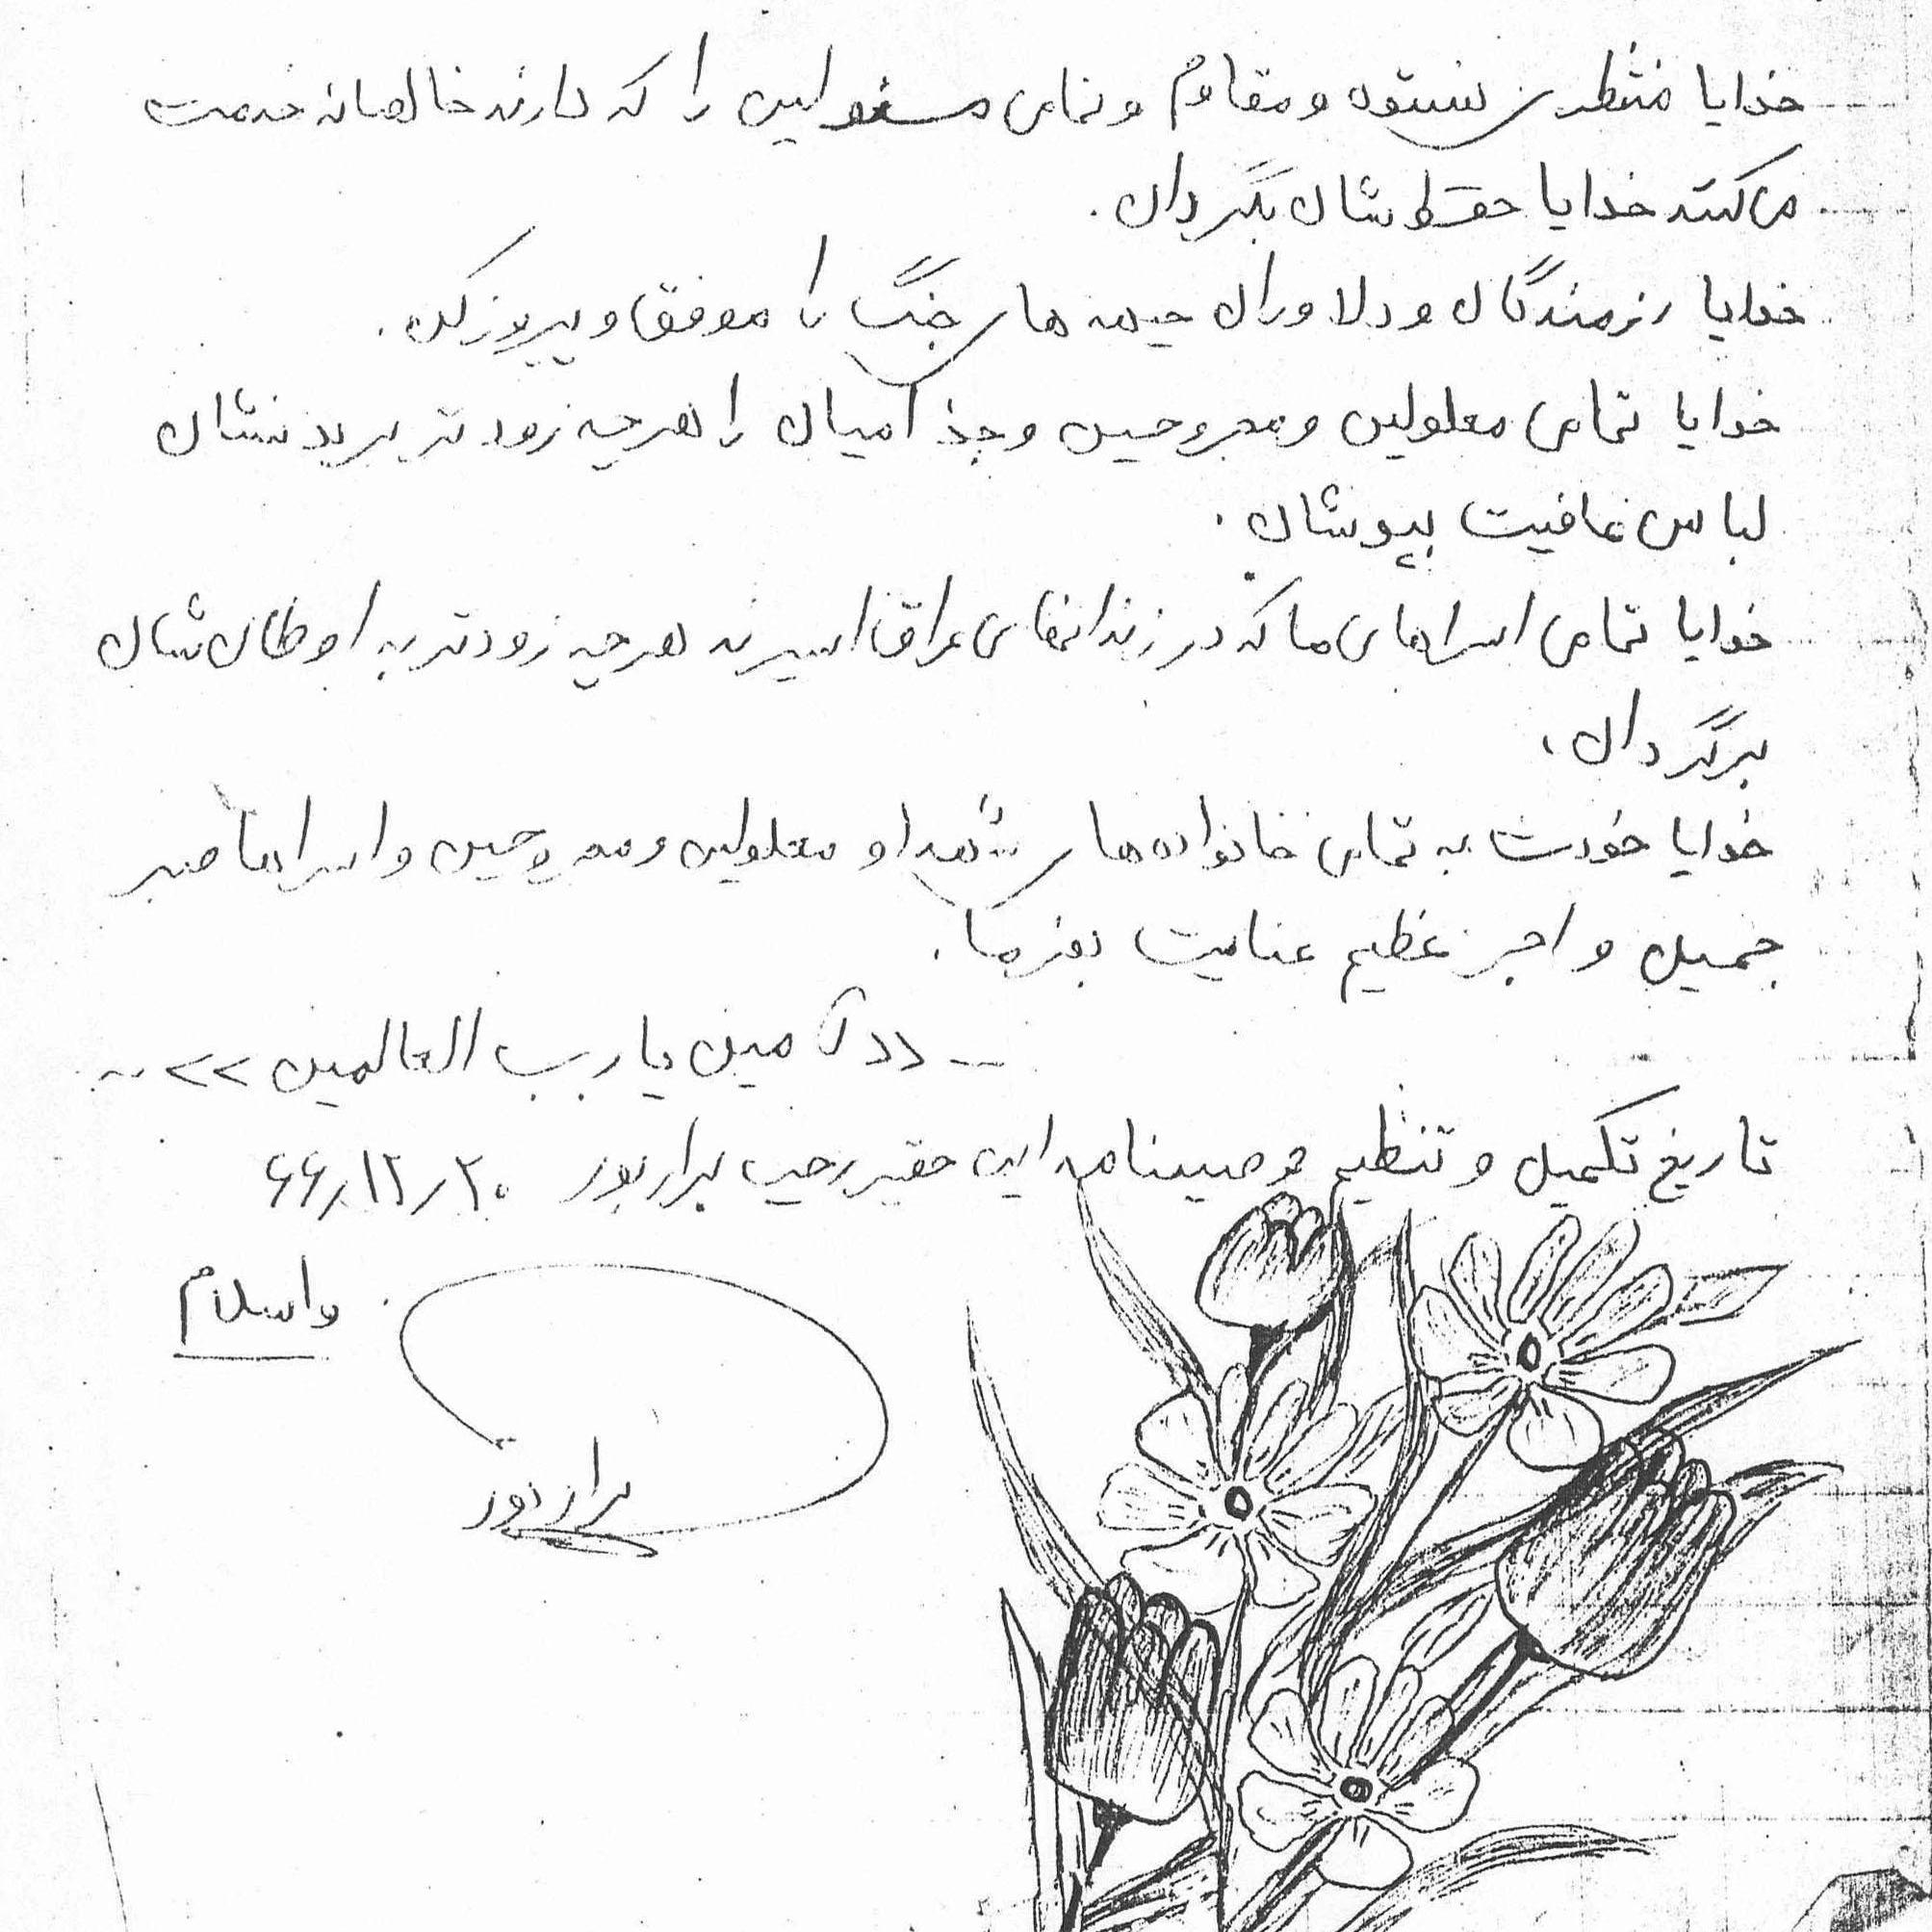 خدایا منتظری نستوه و مقاوم و تمامی مسئولین را که دارند خالصانه خدمت
می کنند خدایا حفظ شان بگردان.
خدایا رزمندگان و دلاوران جبهه های جنگ را موفق و پیروز کن.
خدایا تمامی معلولین و مجروحین و جذامیان را هر چه زودتر بر بدنشان
لباس عافیت بپوشان.
خدایا تمامی اسراهای ما که در زندانهای عراق اسیرند هر چه زودتر به اوطان شان
برگردان.
خدایا خودت به تمامی خانواده های شهدا و معلولین و مجروحین و اسراها صبر
جمیل و اجر عظیم عنایت بفرما.
<< آمین یا رب العالمین >>
تاریخ تکمیل و تنظیم وصیتنامه این حقیر رجب برارپور ۶۶/۱۲/۲۰
واسلام
برارپور